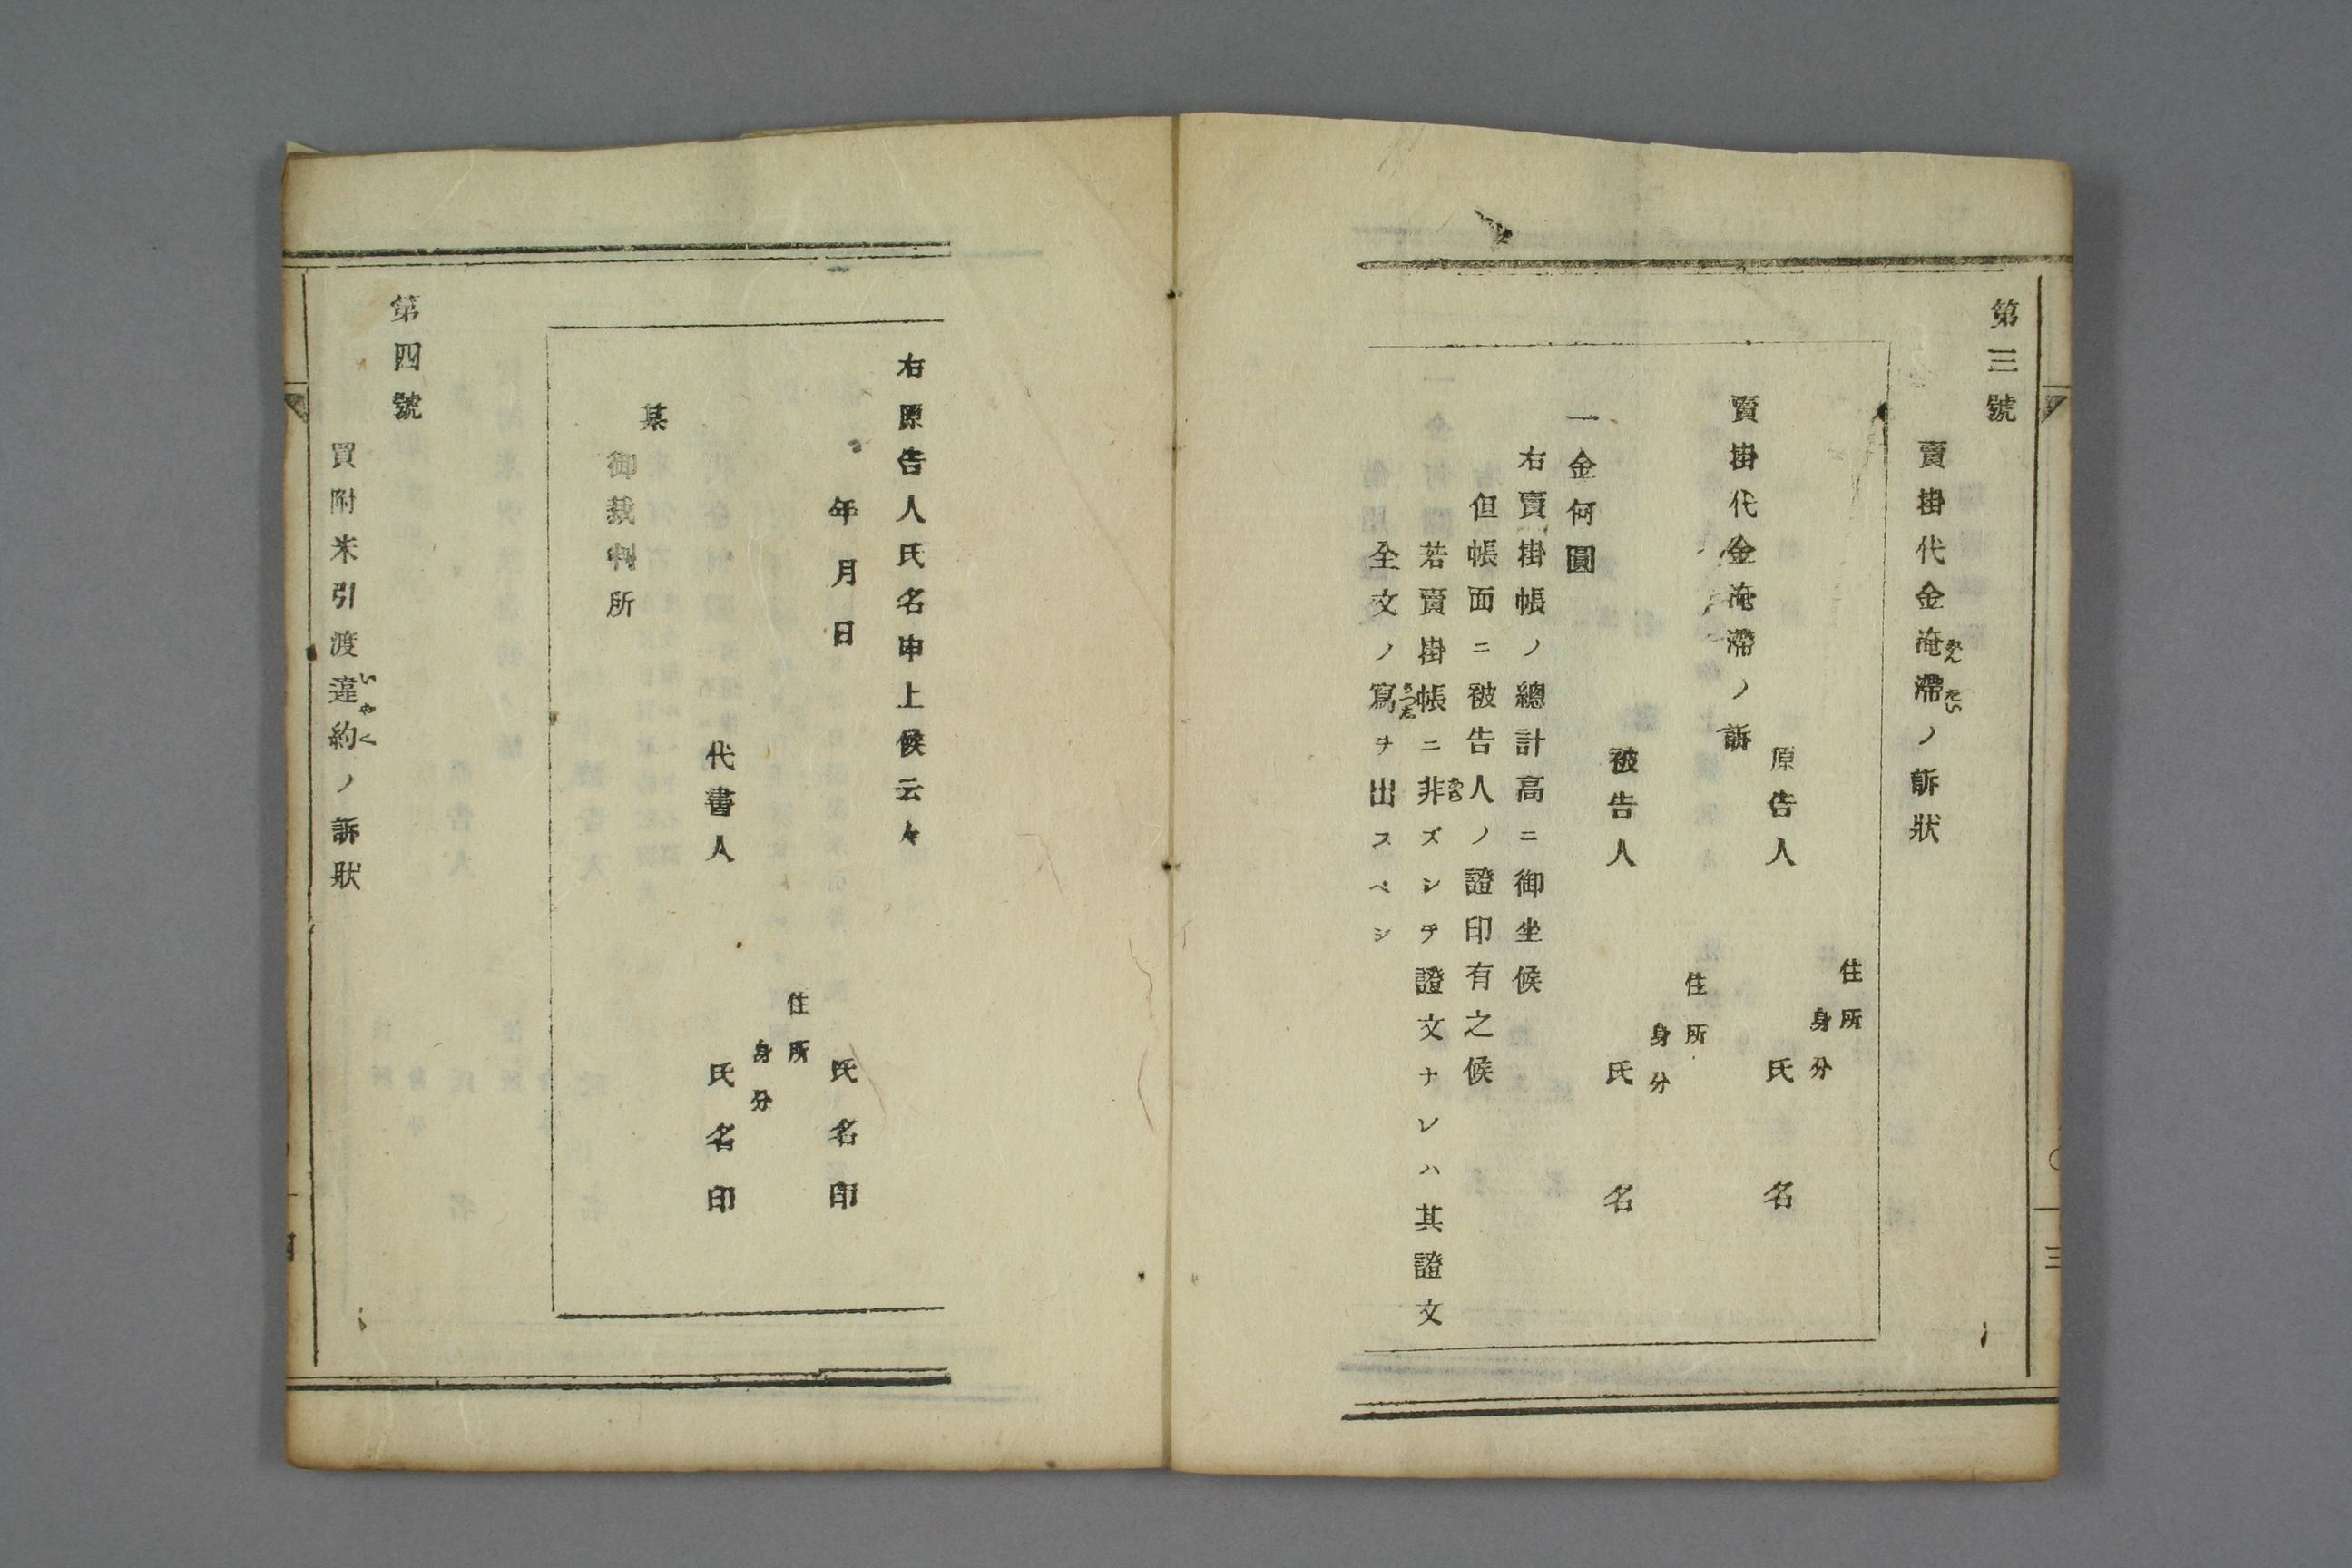 第三號
賣掛代金淹滯ノ訴狀
えんたい
住所
身分
原告人 氏名
賣掛代金淹滯ノ訴
住所
身分
被告人 氏名
一金何圓
右賣掛帳ノ總計高ニ御坐候
但帳面ニ被告人ノ證印有之候
若賣掛帳ニ非ズシテ證文ナレハ其證文
全文ノ寫ヲ出スベシ
三
右原告人氏名申上候云々
年月日 氏名印
住所
身分
代書人 氏名印
某
御裁判所
第四號
買附米引渡違約ノ訴狀
いやく
四